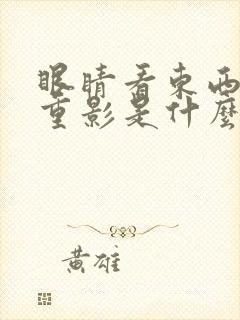 眼睛看東西
重影是什麼
黃雄